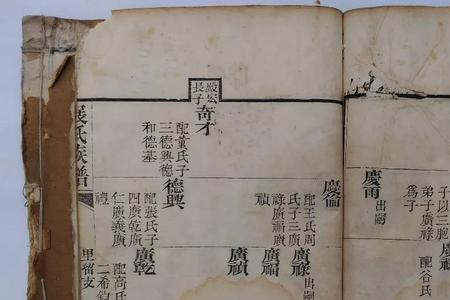 慶雨
出嗣
子以三胞
弟子廣祿
為子
配谷氏
殿宏
長子
奇才
配董氏子
三德興德
和德基
配王氏周
氏子三廣
祿廣福廣
禎
德興
配張氏子
四廣乾廣
仁廣義廣
廣祿
出嗣
廣福
廣禎
廣乾
配高氏
二希鈞
張氏族譜
里留支